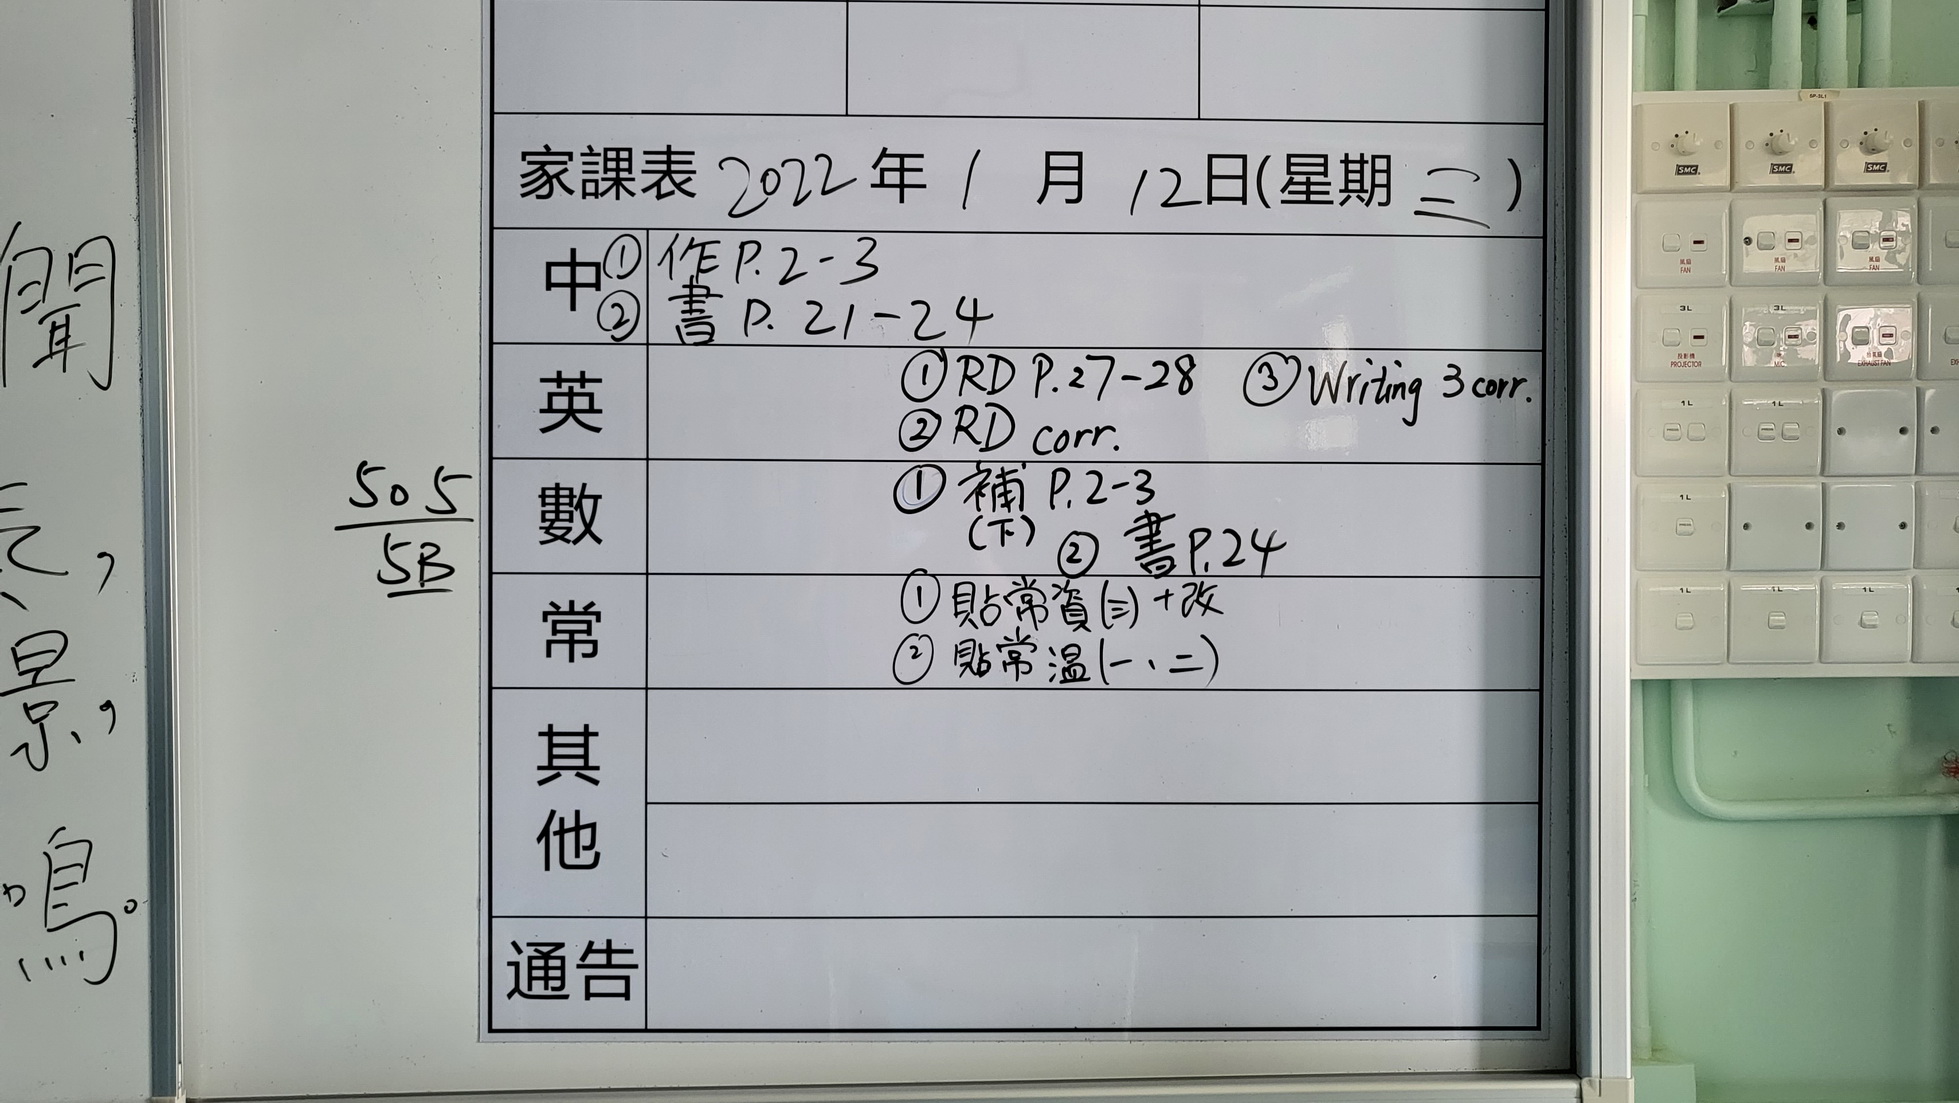 家課表 2022 年 1 月 12 日(星期 三)
中 ① 作 P.2-3
② 書 P. 21-24
英 ① RD P.27-28 ③ Writing 3 corr.
② RD corr.
數 ① 補 P.2-3
(下) ② 書 P.24
常 ① 貼常資(三)+改
② 貼常溫(一、二)
其他
通告
505
5B
聞
景,
鳴。
SP-3L1
SMC SMC SMC
風扇 風扇 風扇
FAN FAN FAN
3L 3L 1L
投影機
PROJECTOR MIC EXHAUST FAN
1L 1L
1L
1L 1L 1L